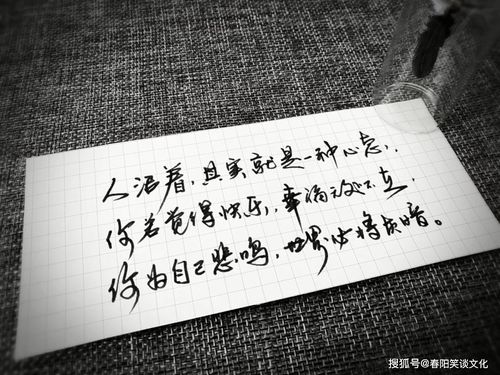 人活着，其实就是一种心态，
你若觉得快乐，幸福无处不在，
你为自己悲鸣，世界必将灰暗。
搜狐号@春阳笑谈文化